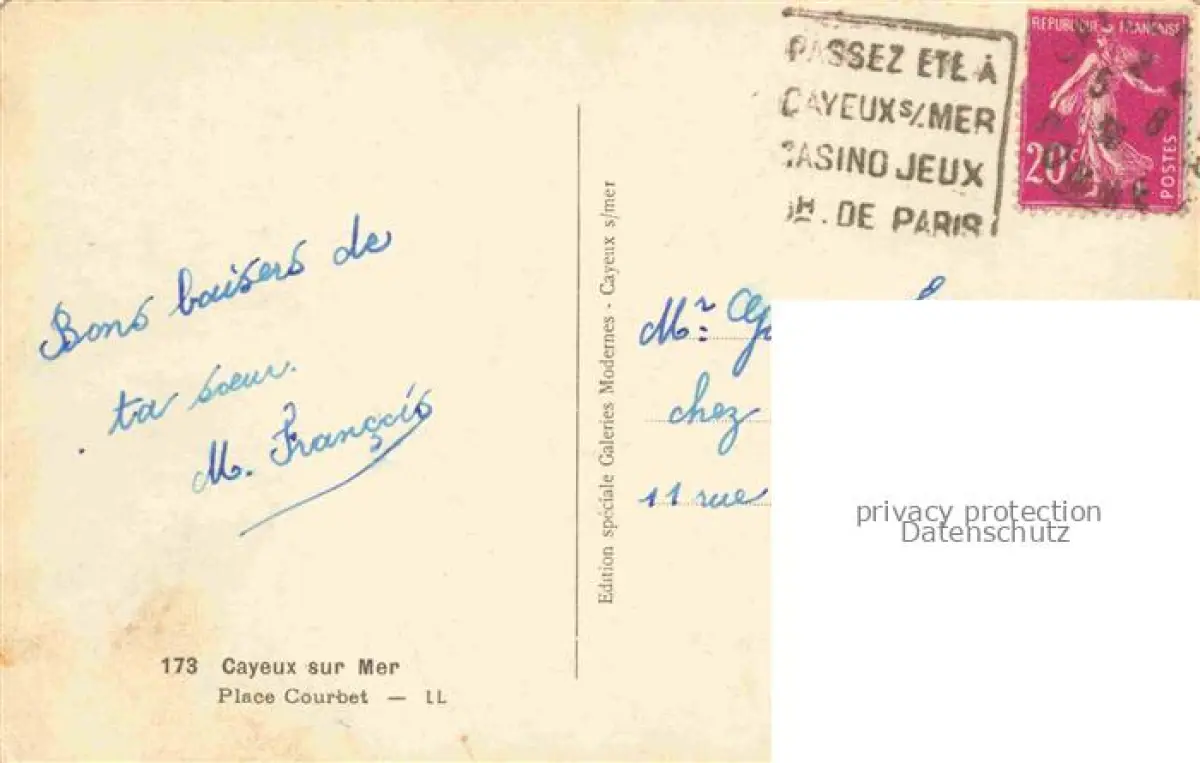 PASSEZ ETE À
CAYEUX S/. MER
CASINO JEUX
H. DE PARIS
REPUBLIQUE FRANÇAISE
20c
POSTES
Bons baisers de
ta soeur.
M. François
Edition spéciale Galeries Modernes - Cayeux s/mer
Mr:
chez
11 rue
privacy protection
Datenschutz
173 Cayeux sur Mer
Place Courbet — LL